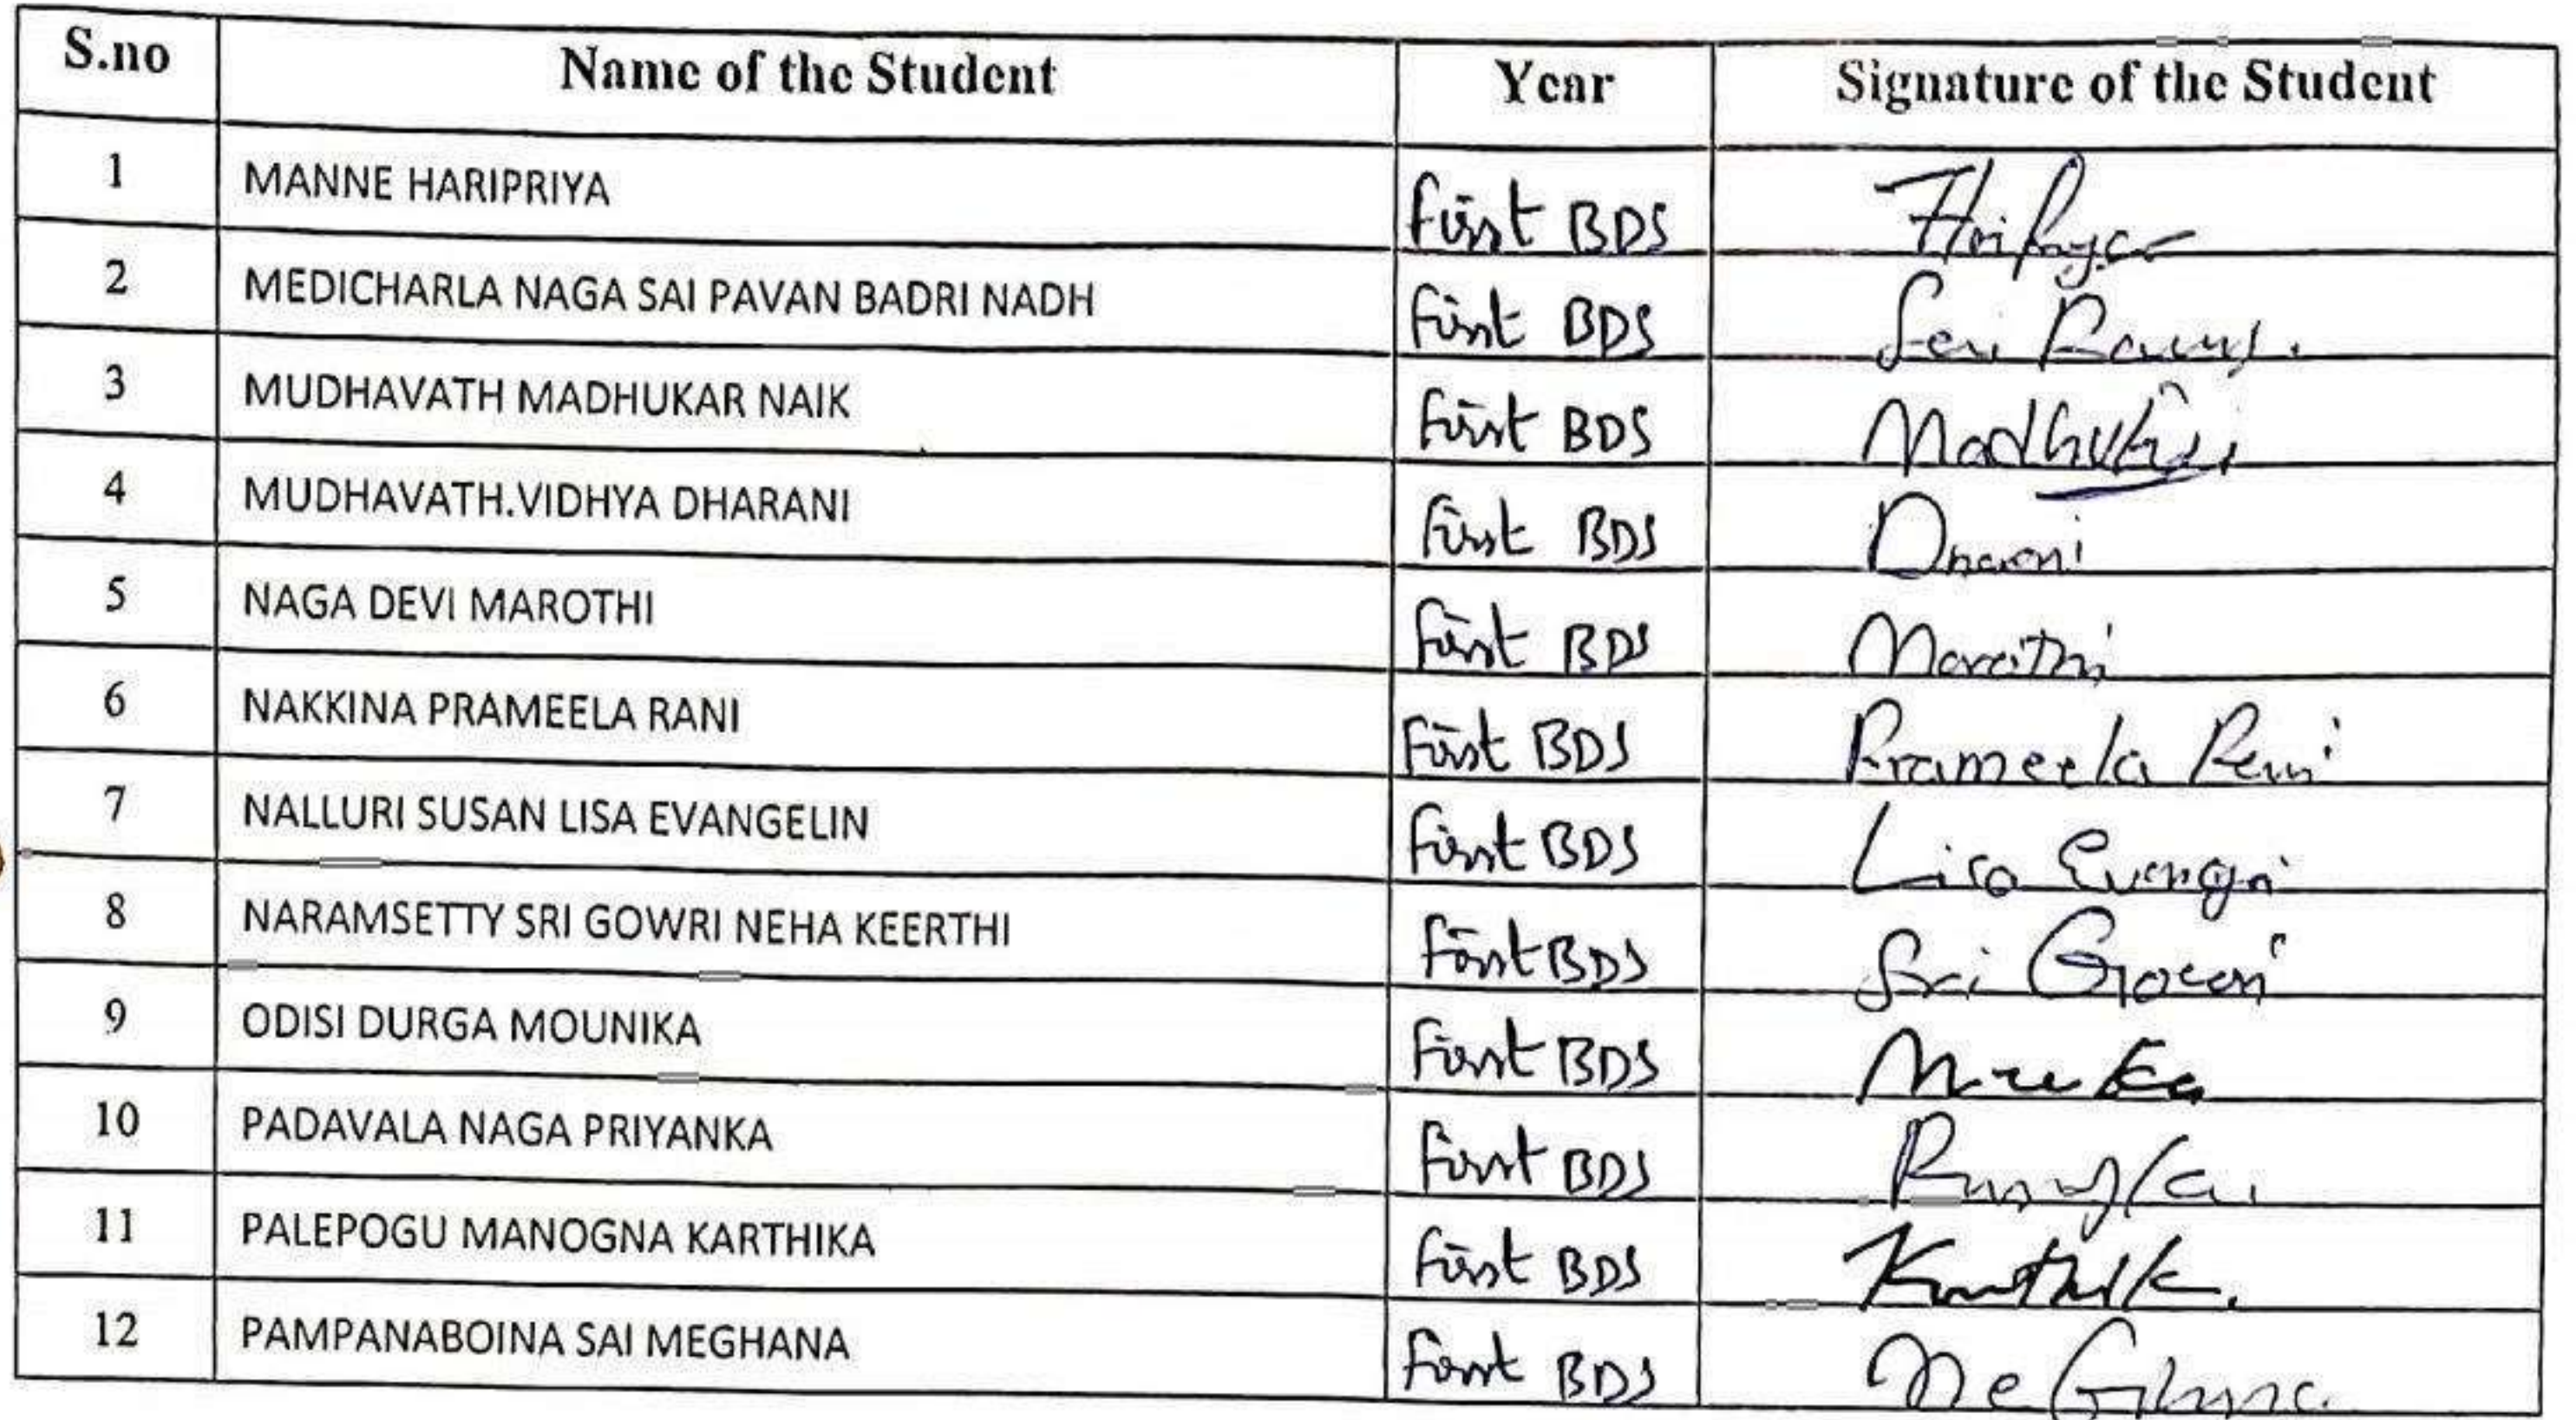 S.no Name of the Student Year Signature of the Student
1 MANNE HARIPRIYA First BDS Haripriya
2 MEDICHARLA NAGA SAI PAVAN BADRI NADH First BDS
3 MUDHAVATH MADHUKAR NAIK First BDS Madhukar
4 MUDHAVATH.VIDHYA DHARANI First BDS Dharni
5 NAGA DEVI MAROTHI First BDS Marothi
6 NAKKINA PRAMEELA RANI First BDS Prameela Rani
7 NALLURI SUSAN LISA EVANGELIN First BDS Lisa
8 NARAMSETTY SRI GOWRI NEHA KEERTHI First BDS Sri Gowri
9 ODISI DURGA MOUNIKA First BDS
10 PADAVALA NAGA PRIYANKA First BDS
11 PALEPOGU MANOGNA KARTHIKA First BDS
12 PAMPANABOINA SAI MEGHANA First BDS Meghana